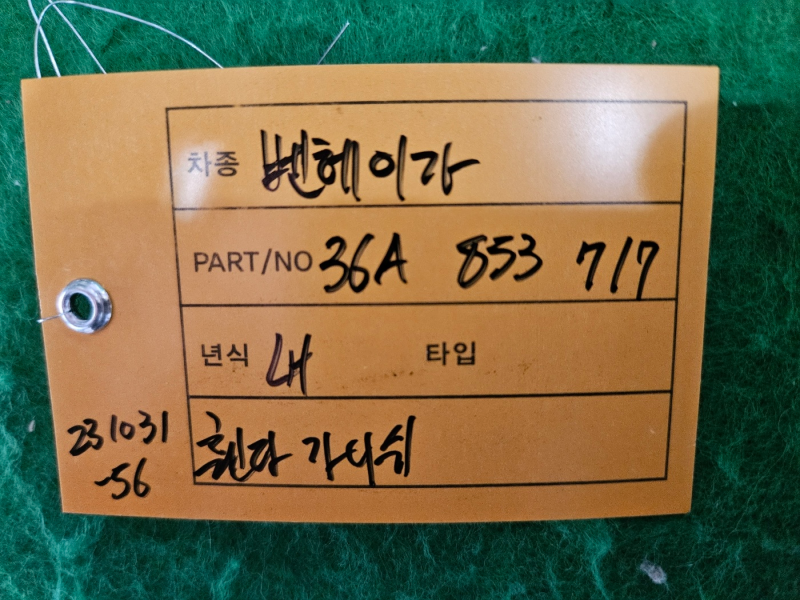 차종 벤테이가
PART/NO 36A 853 717
년식 LH 타입
휀다 가니쉬
231031
-56